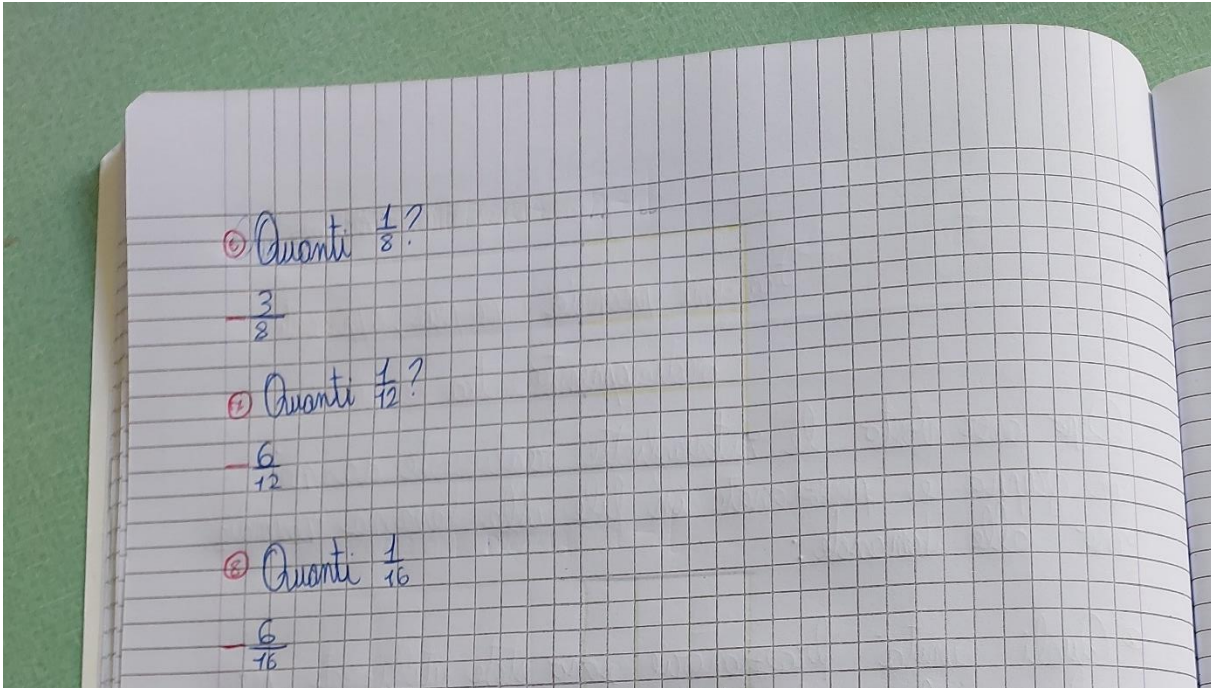 ⑥ Quanti 1/8?
- 3/8
⑦ Quanti 1/12?
- 6/12
⑧ Quanti 1/16
- 6/16